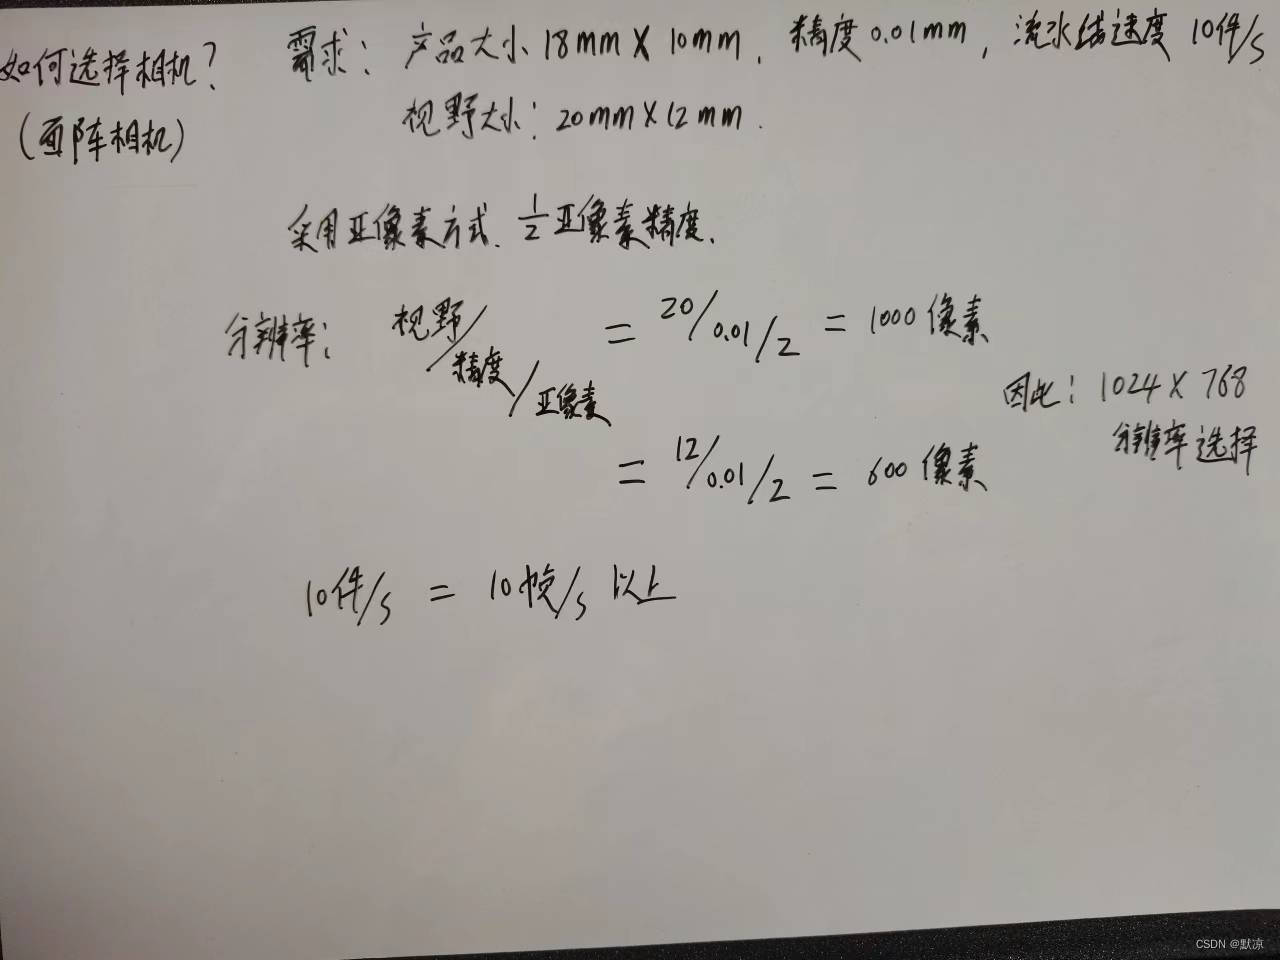 如何选择相机?
(面阵相机)
需求: 产品大小 18mm X 10mm, 精度 0.01mm, 流水线速度 10件/s
视野大小: 20mm X 12mm.
采用亚像素方式. 1/2 亚像素精度.
分辨率: 视野/精度/亚像素 = 20/0.01/2 = 1000 像素
= 12/0.01/2 = 600 像素
因此: 1024 X 768
分辨率选择
10件/s = 10帧/s 以上
CSDN @默凉